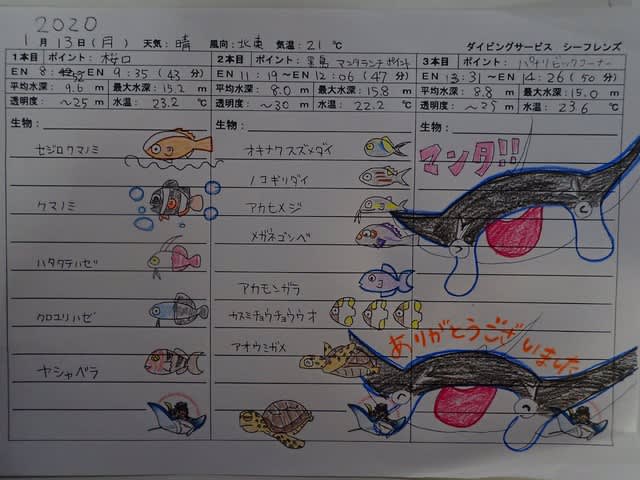 2020
1月13日(月) 天気:晴 風向:北東 気温:21℃ ダイビングサービス シーフレンズ
1本目 ポイント:桜口
EN 8:52~EN 9:35(43分)
平均水深:9.6m 最大水深:15.2m
透明度:~25m 水温:23.2℃
生物:
セジロクマノミ
クマノミ
ハタタテハゼ
クロユリハゼ
ヤシャベラ
2本目 ポイント:マンタランチポイント
EN 11:19~EN 12:06(47分)
平均水深:8.0m 最大水深:15.8m
透明度:~30m 水温:22.2℃
生物:
オキナワスズメダイ
ノコギリダイ
アカヒメジ
メガネゴンベ
アカモンガラ
カスミチョウチョウウオ
アオウミガメ
3本目 ポイント:パナリビックコーナー
EN 13:31~EN 14:26(50分)
平均水深:8.8m 最大水深:15.0m
透明度:~25m 水温:23.6℃
生物:
マンタ!!
ありがとうございました